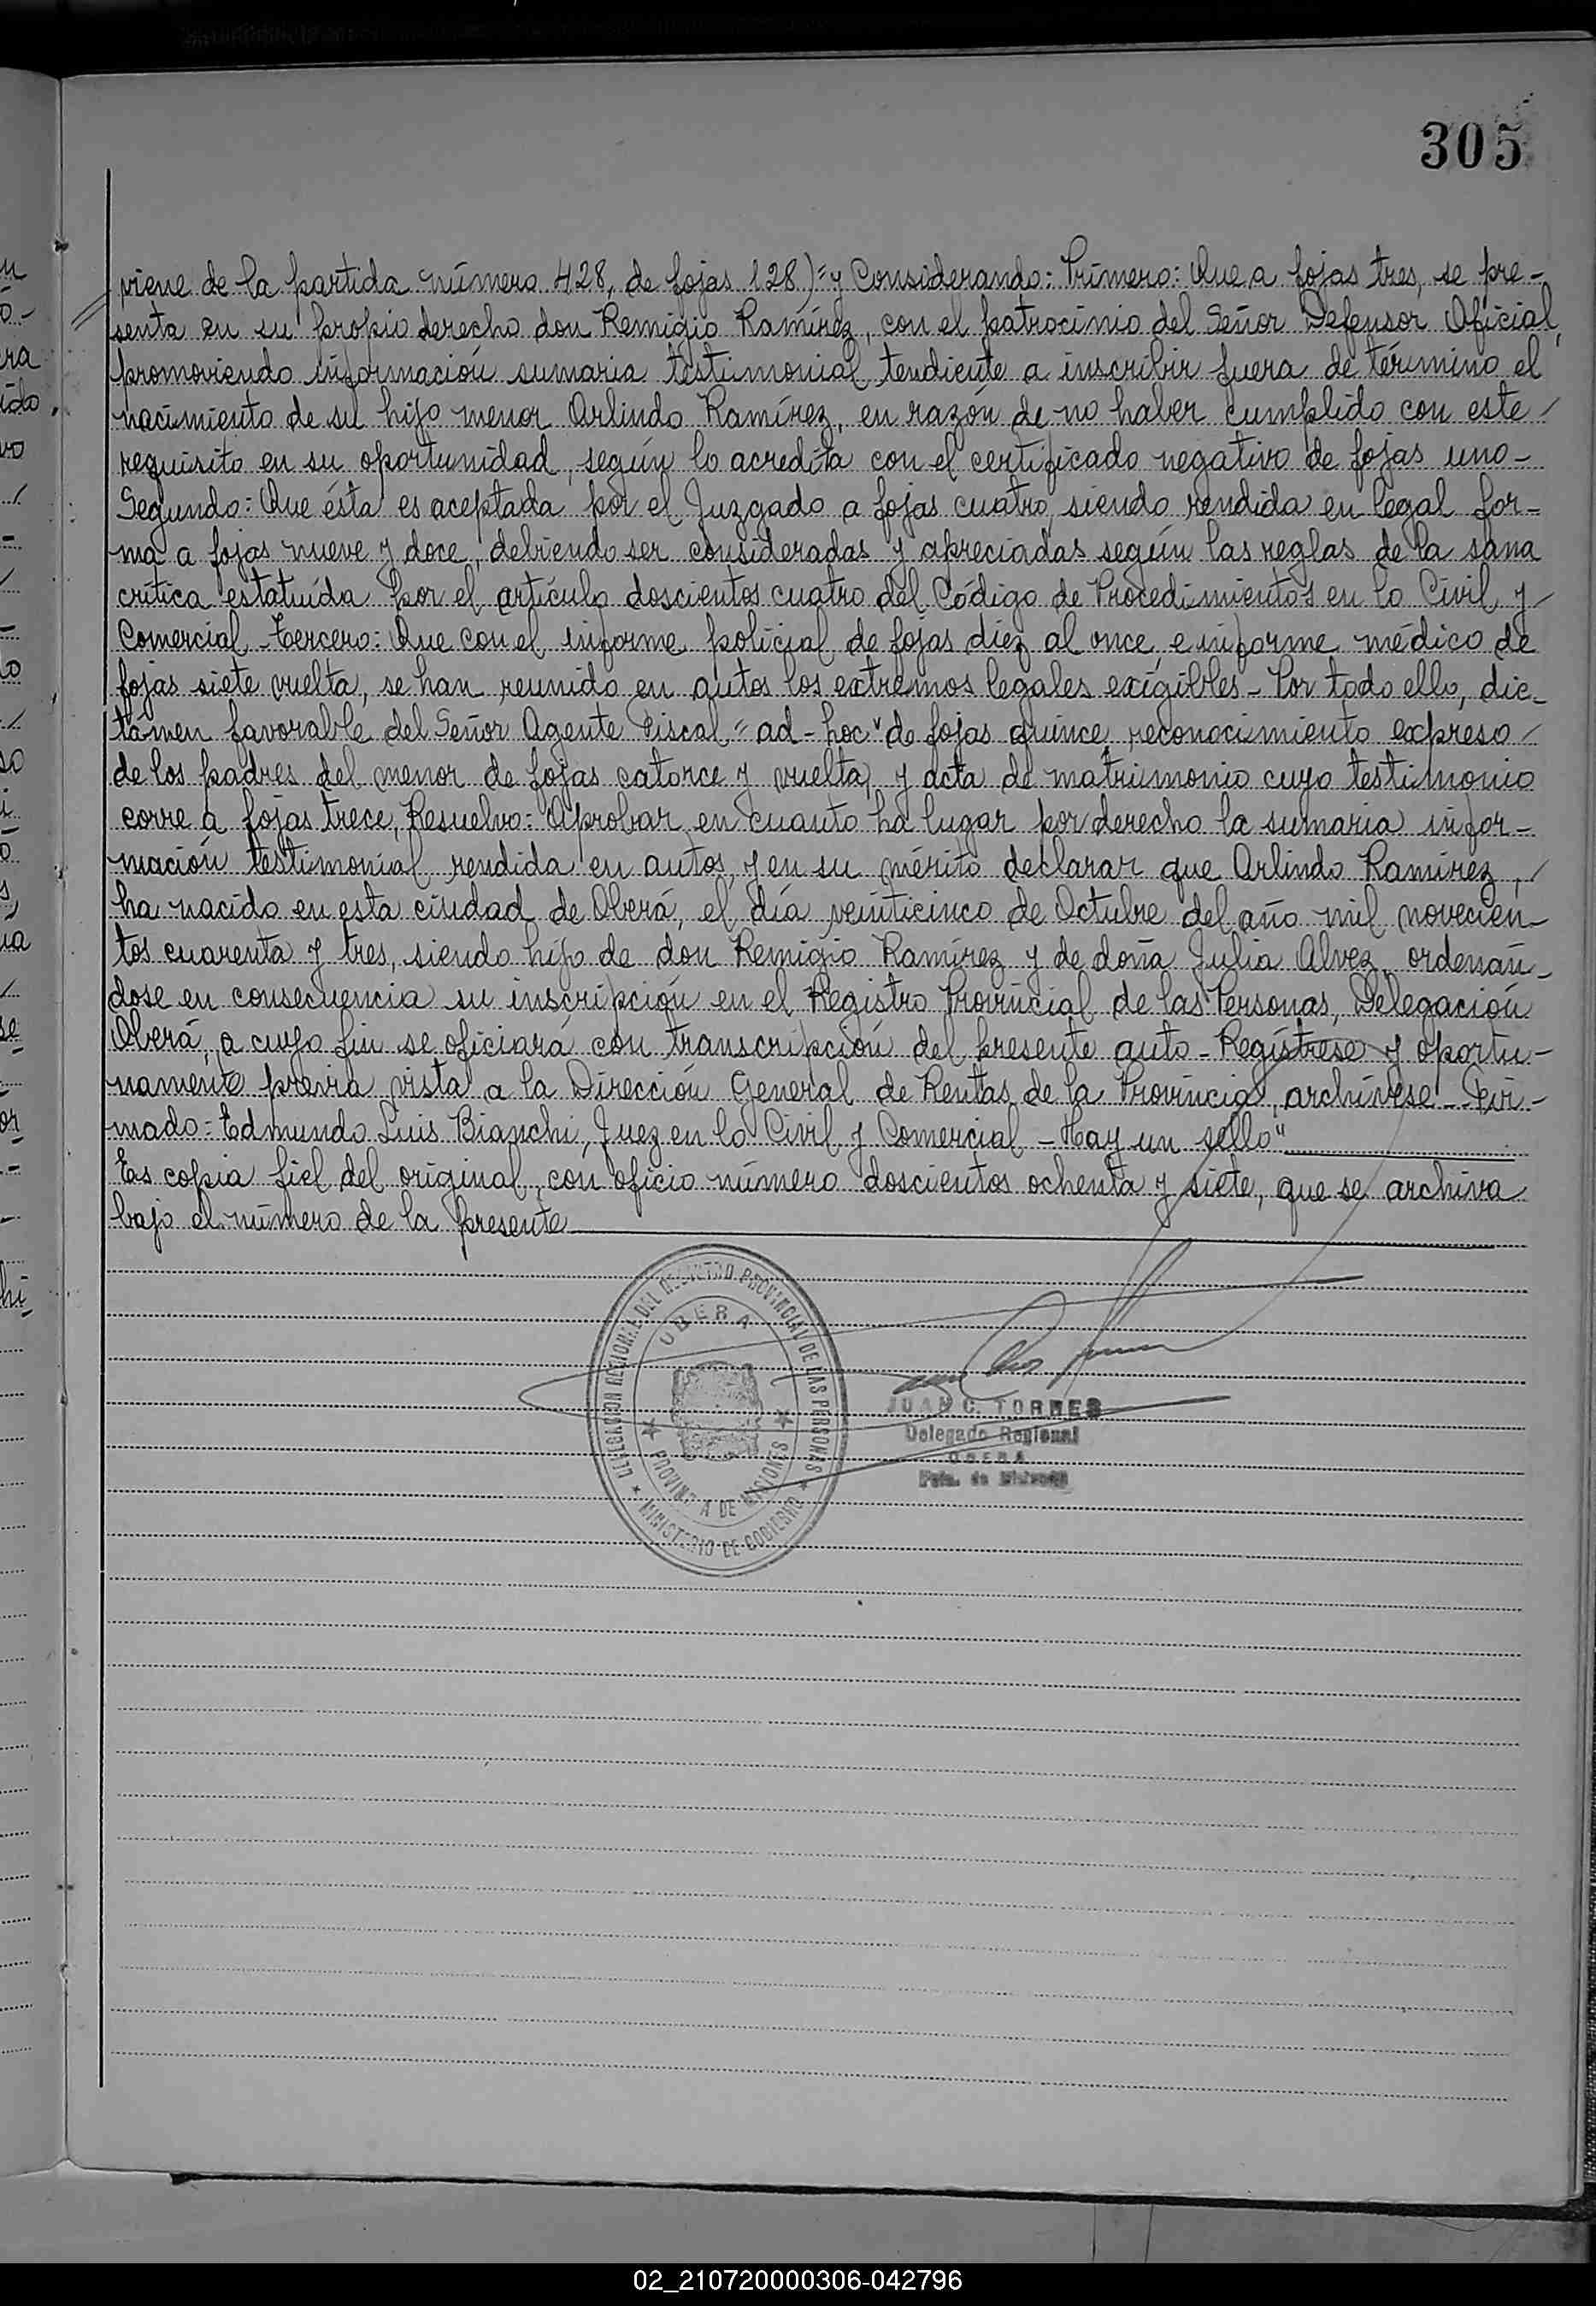 305
viene de la partida número 428, de fojas 128) "y Considerando: Primero: Que a fojas tres, se pre-
senta en su propio derecho don Remigio Ramírez, con el patrocinio del Señor Defensor Oficial,
promoviendo información sumaria testimonial tendiente a inscribir fuera de término el
nacimiento de su hijo menor Arlindo Ramírez, en razón de no haber cumplido con este /
requisito en su oportunidad, según lo acredita con el certificado negativo de fojas uno-
Segundo: Que ésta es aceptada por el Juzgado a fojas cuatro, siendo rendida en legal for-
ma a fojas nueve y doce, debiendo ser consideradas y apreciadas según las reglas de la sana
crítica estatuída por el artículo doscientos cuatro del Código de Procedimientos en lo Civil y /
Comercial - Tercero: Que con el informe policial de fojas diez al once, e informe médico de
fojas siete vuelta, se han reunido en autos los extremos legales exigibles - Por todo ello, dic-
támen favorable del Señor Agente Fiscal "ad-hoc" de fojas quince, reconocimiento expreso /
de los padres del menor de fojas catorce y vuelta, y acta de matrimonio cuyo testimonio
corre a fojas trece, Resuelvo: Aprobar en cuanto ha lugar por derecho la sumaria infor-
mación testimonial rendida en autos, y en su mérito declarar que Arlindo Ramírez, /
ha nacido en esta ciudad de Oberá, el día veinticinco de Octubre del año mil novecien-
tos cuarenta y tres, siendo hijo de don Remigio Ramírez y de doña Julia Alvez, ordenán-
dose en consecuencia su inscripción en el Registro Provincial de las Personas, Delegación
Oberá, a cuyo fin se oficiará con transcripción del presente auto - Regístrese y oportu-
namente previa vista a la Dirección General de Rentas de la Provincia, archívese - Fir-
mado: Edmundo Luis Bianchi, Juez en lo Civil y Comercial - Hay un sello"
Es copia fiel del original, con oficio número doscientos ochenta y siete, que se archiva
bajo el número de la presente
DELEGACION REGIONAL DEL REGISTRO PROVINCIAL DE LAS PERSONAS
OBERA
PROVINCIA DE MISIONES
MINISTERIO DE GOBIERNO
JUAN C. TORRES
Delegado Regional
OBERA
Pcia. de Misiones
02_210720000306-042796